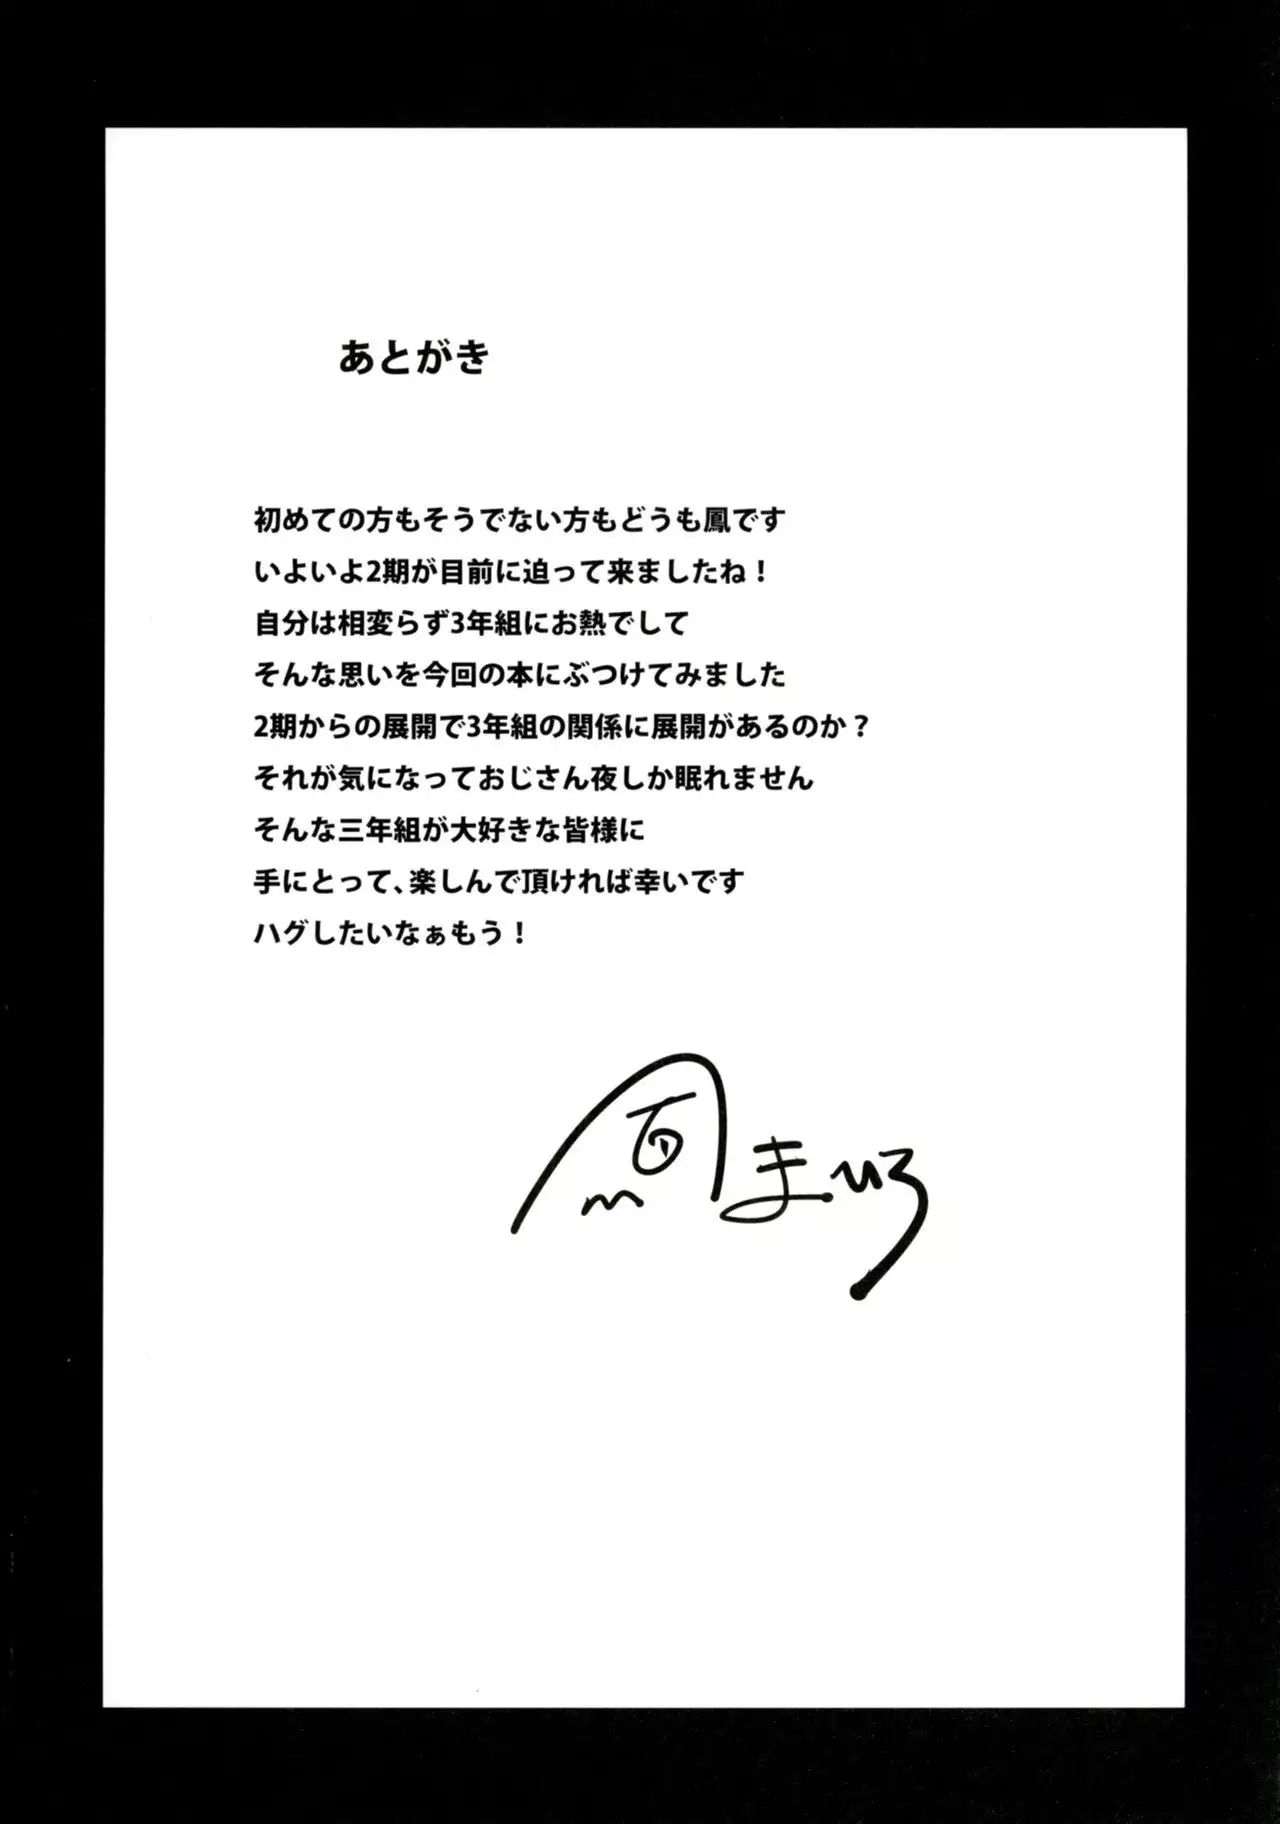 あとがき
初めての方もそうでない方もどうも鳳です
いよいよ2期が目前に迫って来ましたね！
自分は相変らず3年組にお熱でして
そんな思いを今回の本にぶつけてみました
2期からの展開で3年組の関係に展開があるのか？
それが気になっておじさん夜しか眠れません
そんな三年組が大好きな皆様に
手にとって、楽しんで頂ければ幸いです
ハグしたいなぁもう！
鳳まひろ